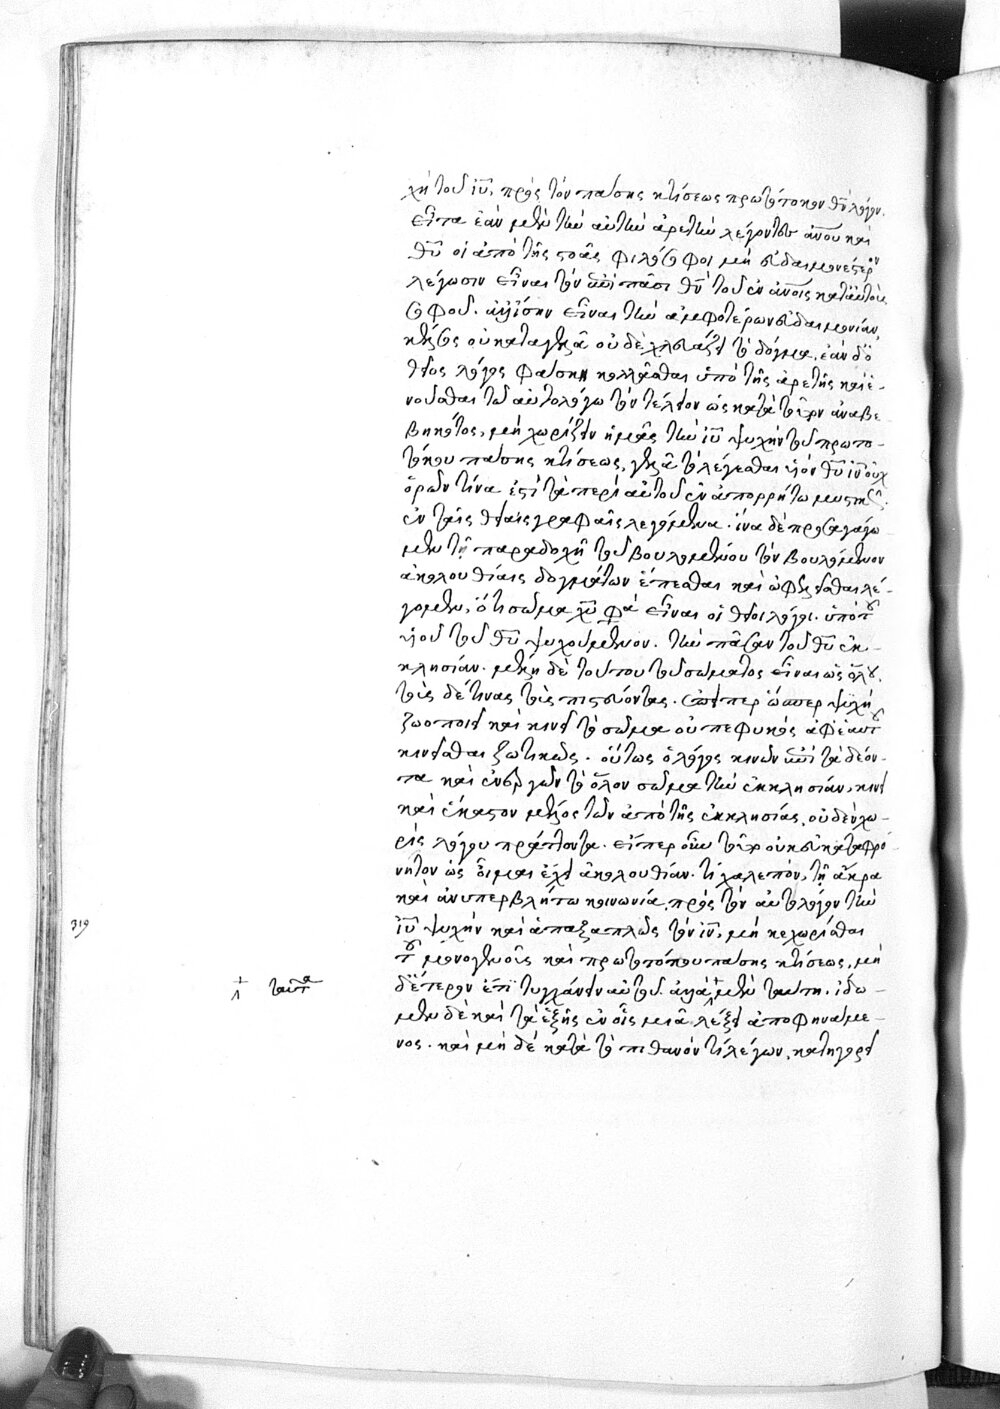 χὴ τοῦ ἰῦ, πρὸς τὸν πάσης κτίσεως πρωτότοκον θν̄ λόγον.
εἶτα ἐὰν μὲν τὴν αὐτὴν ἀρετὴν λέγοντες ἀνου καὶ
θῦ οἱ ἀπὸ τῆς στοᾶς φιλόσοφοι μὴ εὐδαιμονέστερον
λέγωσιν εἶναι τὸν ἐπὶ πᾶσι θν̄ τοῦ ἐν ἀνοις κατ' αὐτοὺς
σοφοῦ. ἀλλ' ἴσην εἶναι τὴν ἀμφοτέρων εὐδαιμονίαν,
κέλσος οὐ καταγελᾶ οὐδὲ χλευάζει τὸ δόγμα. ἐὰν δ' ὁ
θεῖος λόγος φάσκη κολλᾶσθαι ὑπὸ τῆς ἀρετῆς καὶ ἑ-
νοῦσθαι τῶ αὐτολόγω τὸν τέλειον ὡς κατὰ τοῦτον ἀναβε-
βηκότος, μὴ χωρίζειν ἡμᾶς τὴν ἰῦ ψυχὴν τοῦ πρωτο-
τόκου πάσης κτίσεως, γελᾶ τὸ λέγεσθαι υἱὸν θῦ ἰν̄ οὐχ
ὁρῶν τίνα ἐστὶ τὰ περὶ αὐτοῦ ἐν ἀπορρήτω μυστικῶς
ἐν ταῖς θείαις γραφαῖς λεγόμενα. ἵνα δὲ προσαγάγω-
μεν τῆ παραδοχῆ τοῦ βουλομένου τὸν βουλόμενον
ἀκολουθίαις δογμάτων ἕπεσθαι καὶ ὠφελεῖσθαι λέ-
γομεν, ὅτι σῶμα χῦ φα εἶναι οἱ θεῖοι λόγοι. ὑπὸ τοῦ
υἱοῦ τοῦ θῦ ψυχούμενον. τὴν πᾶσαν τοῦ θῦ ἐκ-
κλησίαν. μέλη δὲ τούτου τοῦ σώματος εἶναι ὡς ὅλου,
τοὺς δέ τινας τοὺς πιστεύοντας. ἐπείπερ ὥσπερ ψυχὴ
ζωοποιεῖ καὶ κινεῖ τὸ σῶμα οὐ πεφυκὸς ἀφ' ἑαυτοῦ
κινεῖσθαι ζωτικῶς. οὕτως ὁ λόγος κινῶν ἐπὶ τὰ δέον-
τα καὶ ἐνεργῶν τὸ ὅλον σῶμα τὴν ἐκκλησίαν, κινεῖ
καὶ ἕκαστον μέλος τῶν ἀπὸ τῆς ἐκκλησίας, οὐδὲν χω-
ρὶς λόγου πράττοντα. εἴπερ οὖν τοῦτο οὐκ εὐκαταφρό-
νητον ὡς οἶμαι ἔχει ἀκολουθίαν. τί χαλεπὸν, τῆ ἄκρα
καὶ ἀνυπερβλήτω κοινωνία πρὸς τὸν αὐτολόγον τὴν
ἰῦ ψυχὴν καὶ ἁπαξαπλῶς τὸν ἰν̄, μὴ κεχωρίσθαι
τοῦ μονογενοῦς καὶ πρωτοτόκου πάσης κτίσεως, μὴ
δ' ἕτερον ἔτι τυγχάνειν αὐτοῦ. ἀλλὰ μὲν ταύτη. ἴδω-
μεν δὲ καὶ τὰ ἑξῆς ἐν οἷς μιᾶ λέξει ἀποφηνάμε-
νος. καὶ μὴ δὲ κατὰ τὸ πιθανόν τι λέγων, κατηγορεῖ
319
ταῦτα